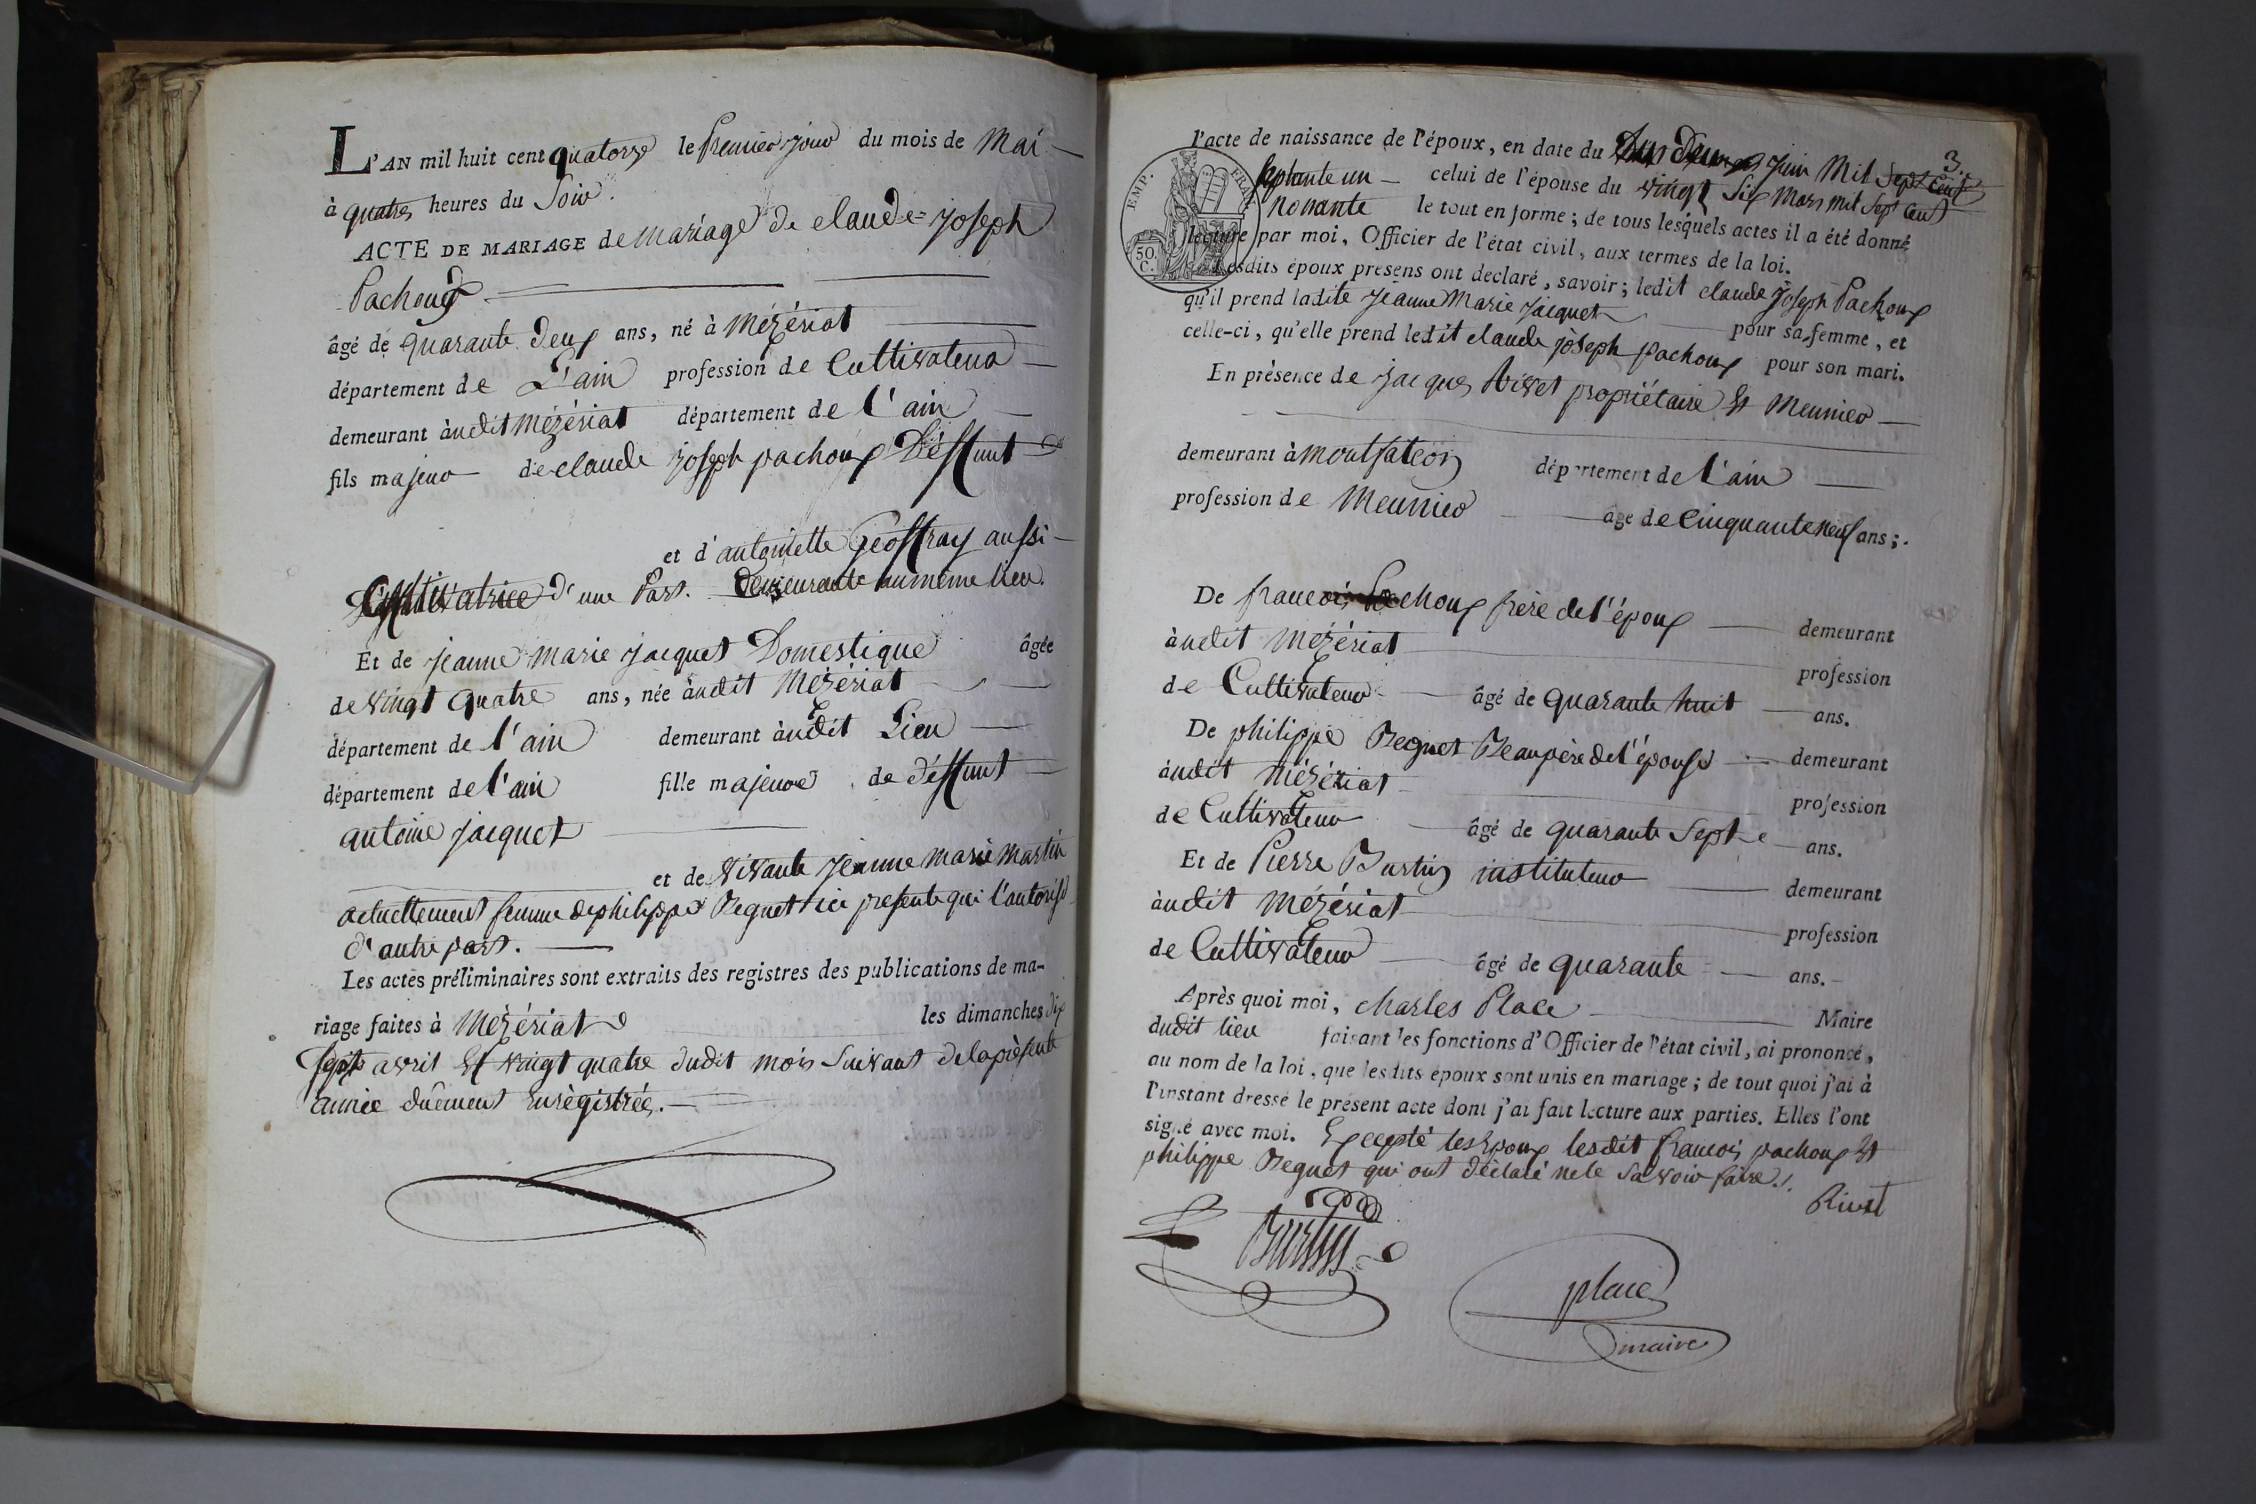 L'AN mil huit cent quatorze le premier jour du mois de Mai
à quatre heures du Soir.
ACTE DE MARIAGE de mariage de claude-joseph
Pachoux
âgé de quarante deux ans, né à Mézériat
département de L'ain profession de Cultivateur
demeurant àudit Mézériat département de l'ain
fils majeur de claude joseph pachoux Déffunt
et d'antoinette Geoffray aussi
d'une Part. demeurante au même lieu.
Et de jeanne marie jacquet Domestique âgée
de vingt quatre ans, née àudit Mézériat
département de l'ain demeurant àudit Lieu
département de l'ain fille majeure de déffunt
antoine jacquet
et de vivante jeanne marie martin
actuellement femme de philippe Reguet ici presente qui l'autorise
d'autre part.
Les actes préliminaires sont extraits des registres des publications de ma-
riage faites à Mézériat les dimanches dix
sept avril Et vingt quatre dudit mois suivant de la présente
année dûement Enrègistrée.
3.
l'acte de naissance de l'époux, en date du juin Mil Sept Cent
septante un celui de l'épouse du vingt Six Mars mil Sept Cent
nonante le tout en forme; de tous lesquels actes il a été donné
lecture par moi, Officier de l'état civil, aux termes de la loi.
Lesdits époux présens ont déclaré, savoir; ledit claude joseph Pachoux
qu'il prend ladite jeanne Marie jacquet pour sa femme, et
celle-ci, qu'elle prend ledit claude joseph pachoux pour son mari.
En présence de jacques Rivet propriétaire Et Meunier
demeurant à montfalcon département de l'ain
profession de Meunier âgé de Cinquante neuf ans;
De francois Pachoux frère de l'époux demeurant
àudit Mézériat profession
de Cultivateur âgé de quarante huit ans.
De philippe Reguet Beaupère de l'épouse demeurant
àudit Mézériat profession
de Cultivateur âgé de quarante Sept ans.
Et de Pierre Burtin instituteur demeurant
àudit Mézériat profession
de Cultivateur âgé de quarante ans.
Après quoi moi, charles Place Maire
dudit lieu faisant les fonctions d'Officier de l'état civil, ai prononcé,
au nom de la loi, que lesdits époux sont unis en mariage; de tout quoi j'ai à
l'instant dressé le présent acte dont j'ai fait lecture aux parties. Elles l'ont
signé avec moi. Excepté les Epoux lesdit francois pachoux Et
philippe Reguet qui ont déclaré ne le savoir faire./.
Rivet
Burtin
place
maire
EMP. FRAN.
50.
C.